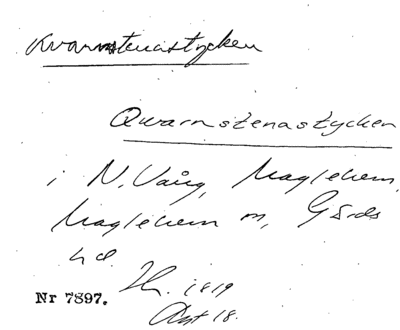 Kvarnstenastycken
Qwarnstenastycken
i N. Vång, Maglehem,
Maglehem sn, Gärds
hd.
Nr 7897. 1819
Akt 18.